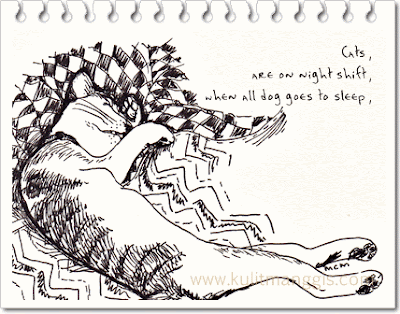 Cats,
are on night shift,
when all dog goes to sleep,
MCM
www.kulitmanggis.com